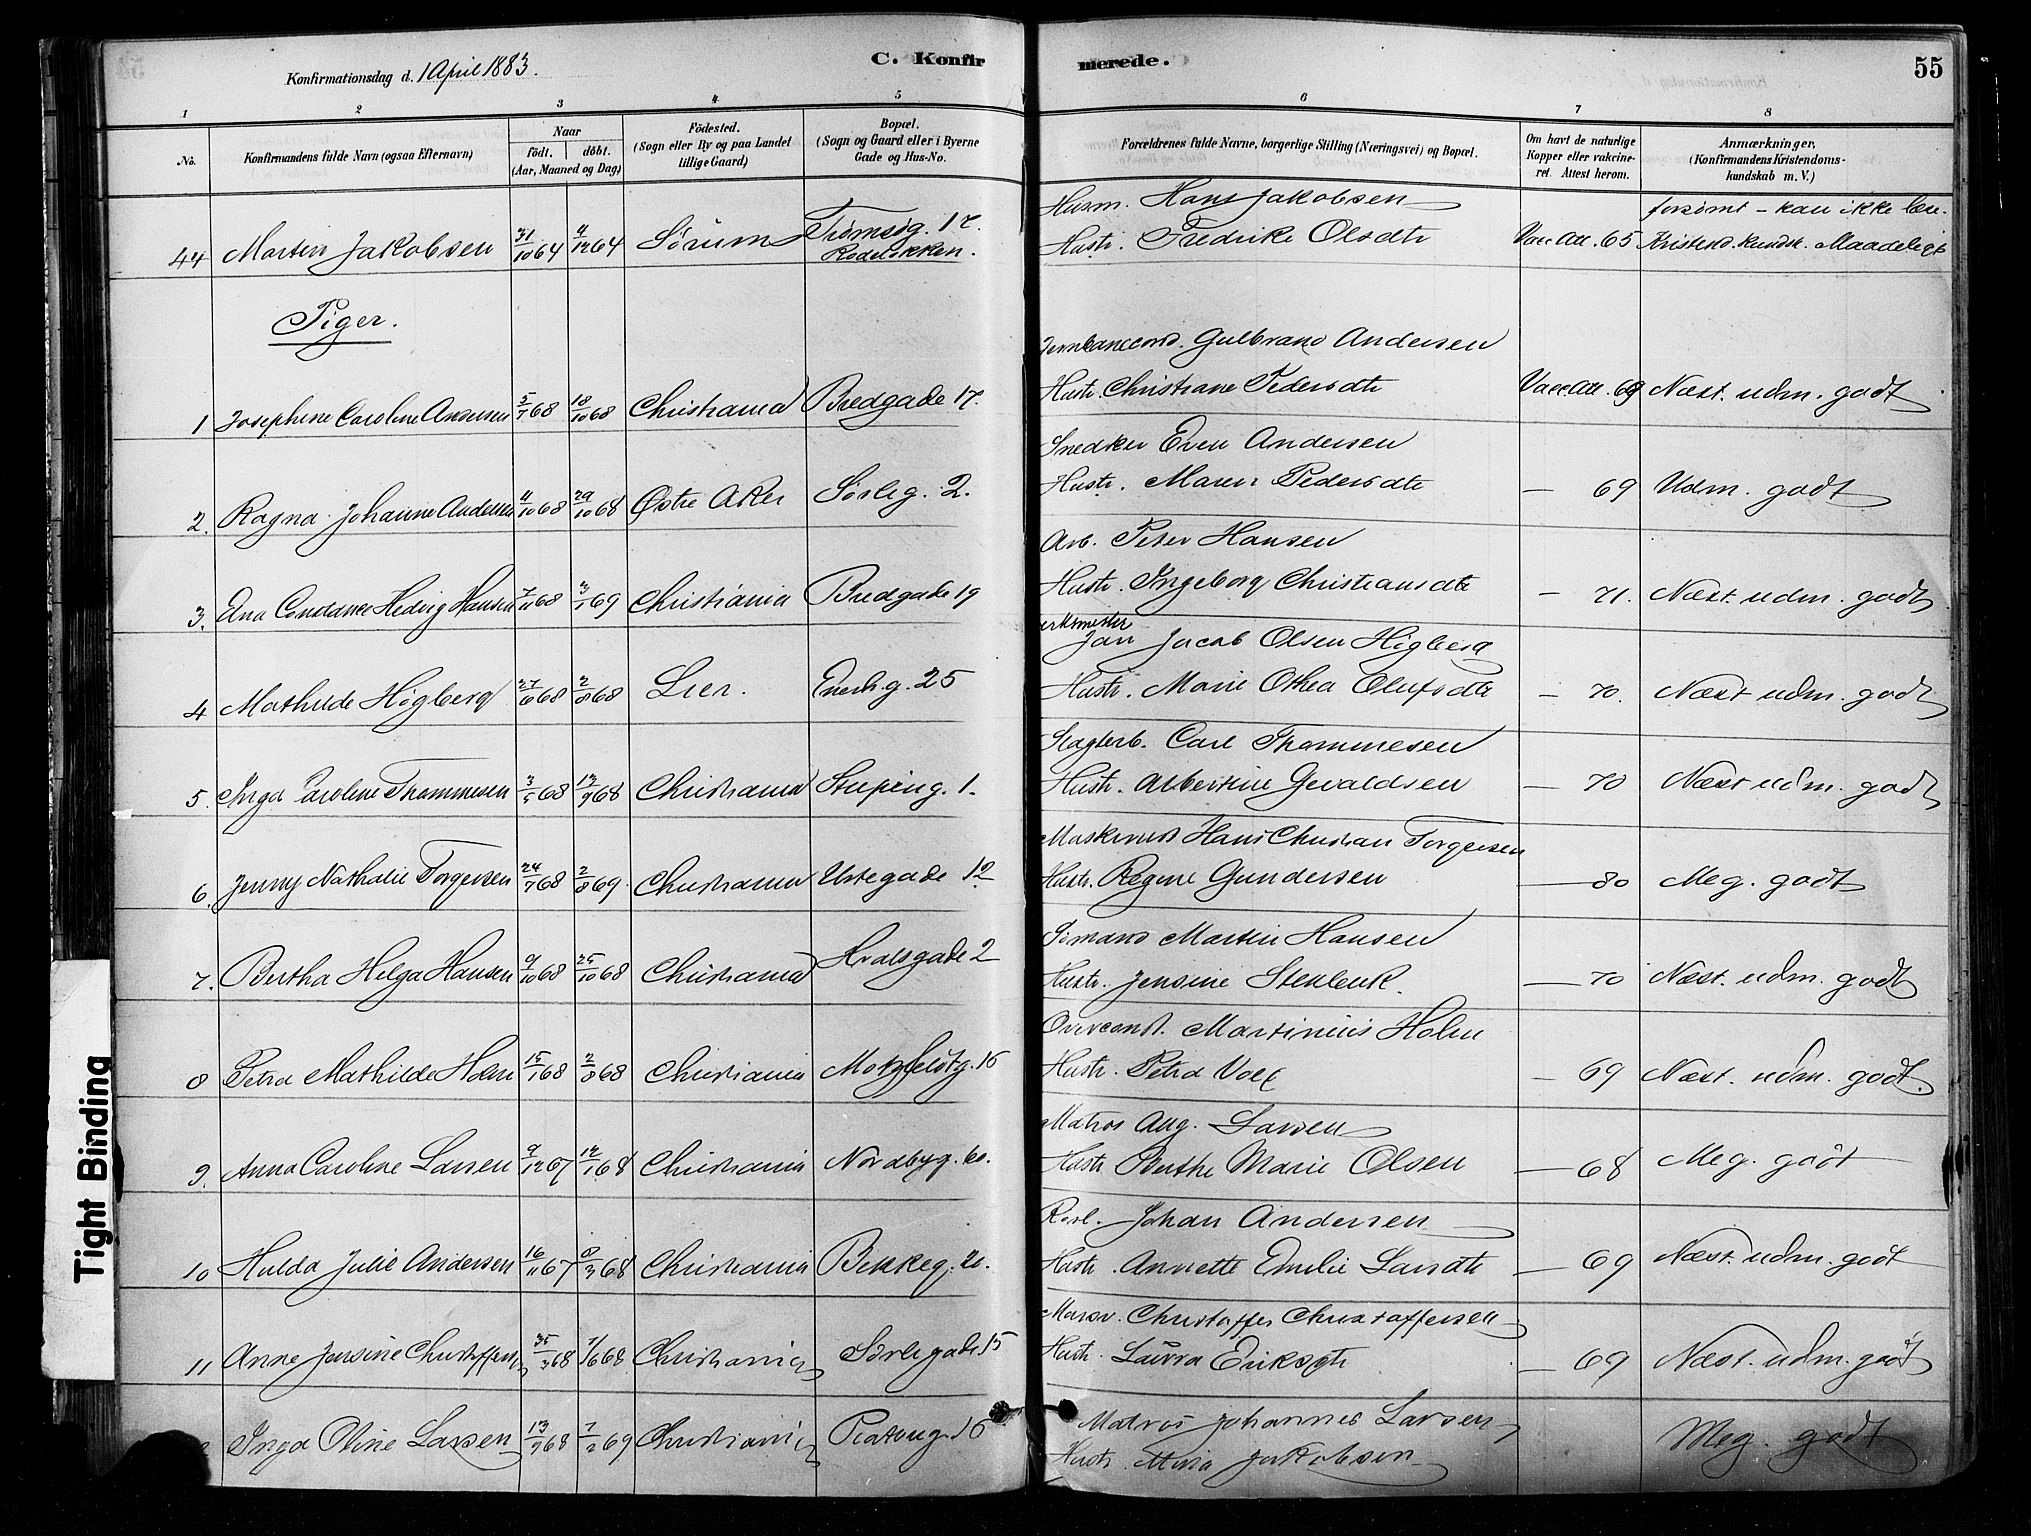 Konfirmationsdag d. 1 April 1883.
C. Konfirmerede.
55
1 2 3 4 5 6 7 8
No.
Konfirmandens fulde Navn (ogsaa Efternavn)
Naar
født. døbt.
(Aar, Maaned og Dag)
Fødested.
(Sogn eller By og paa Landet
tillige Gaard)
Bopæl.
(Sogn og Gaard eller i Byerne
Gade og Hus-No.
Forældrenes fulde Navne, borgerlige Stilling (Næringsvei) og Bopæl.
Om havt de naturlige
Kopper eller vakcine-
ret. Attest herom.
Anmærkninger,
(Konfirmandens Kristendoms-
kundskab m. V.)
44 Martin Jakobsen 31/10 64 4/12 64 Sørum Tromsøg. 17. Rodeløkken.
Husm. Hans Jakobsen
Hustr. Fredrike Olsdtr Vacc. Att. 65
forsømt - kan ikke læse.
Kristend. kundsk. Maadeligt
Piger.
1 Josephine Caroline Andersen 5/7 68 18/10 68 Christiania Bredgade 17.
Gulbrand Andersen
Hustr. Christiane Pedersdtr Vacc. Att. 69 Næst. udm. godt
2. Ragna Johanne Andersen 11/10 68 29/10 68 Østre Aker Sørleg. 2.
Snedker Even Andersen
Hustr. Maren Pedersdtr — 69 Udm. godt
3. Ena Constance Hedvig Hansen 7/11 68 3/1 69 Christiania Bredgade 19
Arb. Peter Hansen
Hustr. Ingeborg Christiansdtr — 71. Næst. udm. godt
4 Mathilde Høgberg 27/6 68 2/8 68 Lier. Enerh.g. 25
Verksmester Jan Jacob Olsen Høgberg
Hustr. Marie Othea Olufsdtr — 70. Næst udm. godt
5. Inga Caroline Thommesen 3/5 68 13/9 68 Christiania Stuping. 1.
Slagterb. Carl Thommesen
Hustr. Albertine Gevaldsen — 70 Næst udm. godt
6. Jenny Nathalie Torgersen 24/7 68 2/8 69. Christiania Urtegade 12
Maskinist Hans Christian Torgersen
Hustr. Regine Gundersen — 80 Meg. godt
7. Bertha Helga Hansen 9/10 68 25/10 68 Christiania Hvalsgade 2
Sømand Martin Hansen
Hustr. Jensine Stenberk. — 70 Næst. udm. godt
8 Petra Mathilde Holm 15/1 68 2/8 68 Christiania Motzfeldtg. 16
Overcond. Martinius Holm
Hustr. Petra Voll — 69 Næst. udm. godt.
9. Anna Caroline Larsen 9/12 67 12/1 68 Christiania Nordbyg. 60.
Matros Aug. Larsen
Hustr Berthe Marie Olsen — 68 Meg. godt
10 Hulda Julie Andersen 16/11 67 8/3 68 Christiania Bekkeg. 20.
Johan Andersen
Hustr. Annette Emilie Larsdtr — 69 Næst. udm. godt
11 Anne Jensine Christoffersen 7/6 68 Christiania Sørlegade 15
Christoffer Christoffersen
Hustr. Laura Eriksdtr — 69 Næst. udm. godt
Inga Oline Larsen 13/9 68 7/2 69 Christiania Platoug. 16
Matros Johannes Larsen
Hustr. Mina Jakobsen Meg. godt
Tight Binding